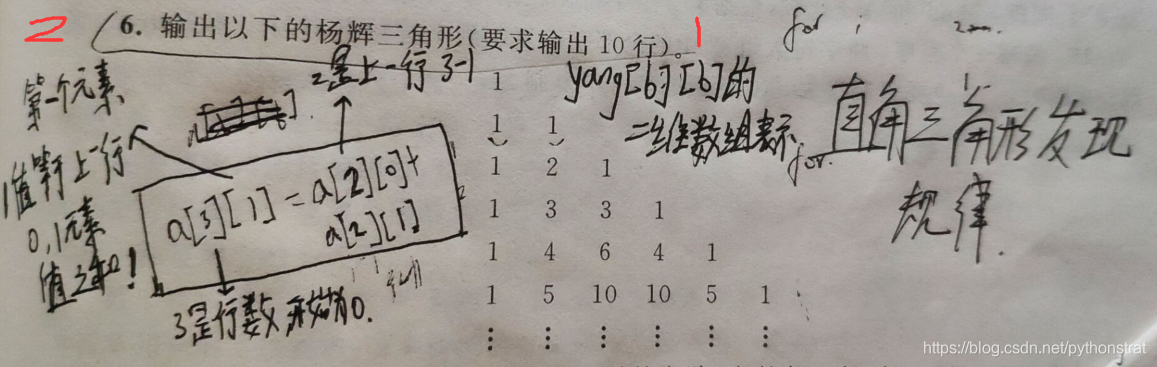 2
6. 输出以下的杨辉三角形(要求输出 10 行)。
1
for i
2是上一行 3-1
第一个元素
1值等于上一行
0,1元素
值之和!
a[3][1]=a[2][0]+
a[2][1]
3是行数 开始为0.
yang[6][6]的
二维数组表示
for
直角三角形发现
规律.
1
1 1
1 2 1
1 3 3 1
1 4 6 4 1
1 5 10 10 5 1
⋮ ⋮ ⋮ ⋮ ⋮ ⋮
https://blog.csdn.net/pythonstrat